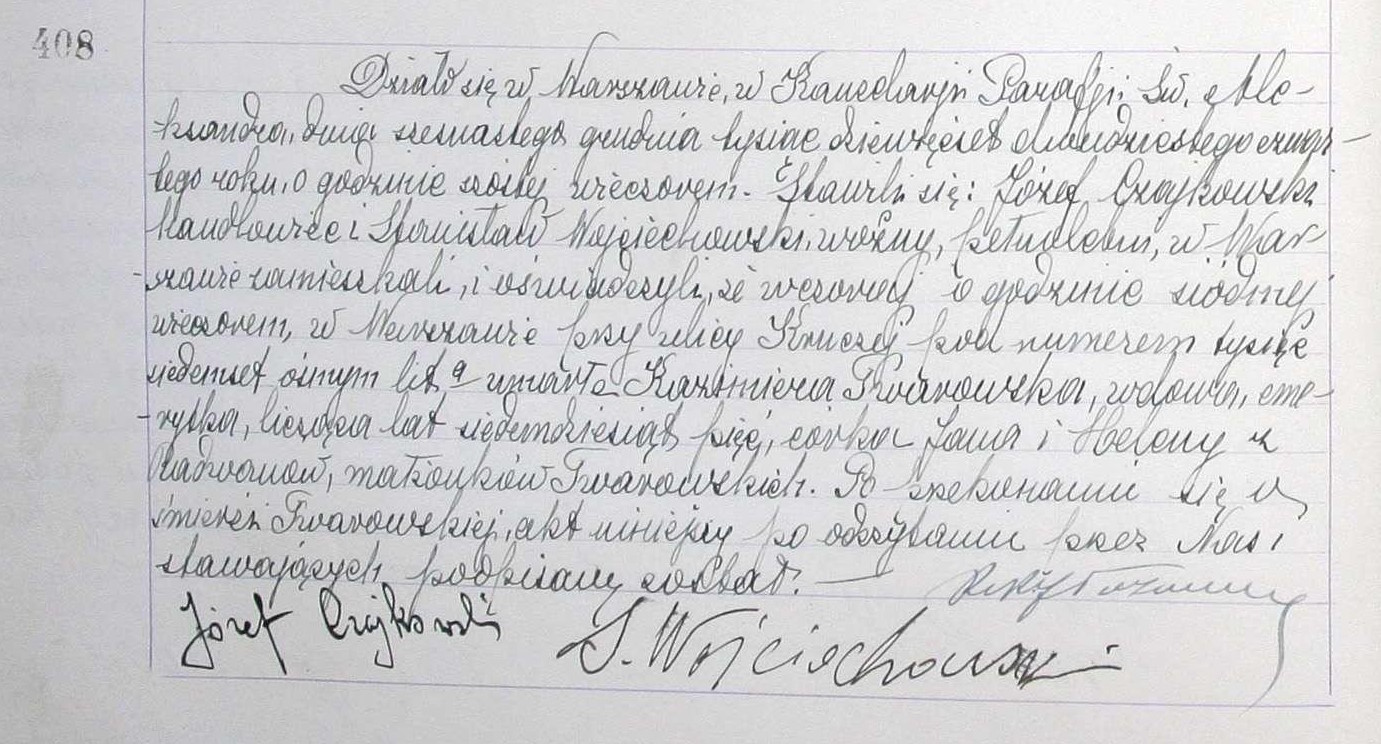 408
Działo się w Warszawie, w Kancelarji Parafji Św. Ale-
ksandra, dnia szesnastego grudnia tysiąc dziewięćset dwudziestego czwar-
tego roku, o godzinie szóstej wieczorem. Stawili się: Józef Czajkowski
handlowiec i Stanisław Wojciechowski, woźny, pełnoletni, w War-
szawie zamieszkali, i oświadczyli, że wczoraj o godzinie siódmej
wieczorem, w Warszawie przy ulicy Kruczej pod numerem tysiąc
siedemset ósmym lit. a umarła Kazimiera Twarowska, wdowa, eme-
rytka, licząca lat siedemdziesiąt pięć, córka Jana i Heleny z
Radwanów, małżonków Twarowskich. Po przekonaniu się o
śmierci Twarowskiej, akt niniejszy po odczytaniu przez Nas i
stawających podpisany został. —
Józef Czajkowski S. Wojciechowski